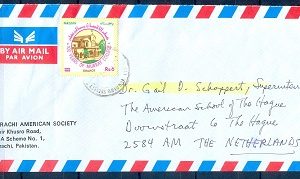 BY AIR MAIL
PAR AVION
PAKISTAN
Rs 5
Dr. Gail D. Schoppert, Superinten
The American School of The Hague
Doornstraat 6 The Hague
2584 AM THE NETHERLANDS
RACHI AMERICAN SOCIETY
ir Khusro Road,
A Scheme No. 1,
achi, Pakistan.